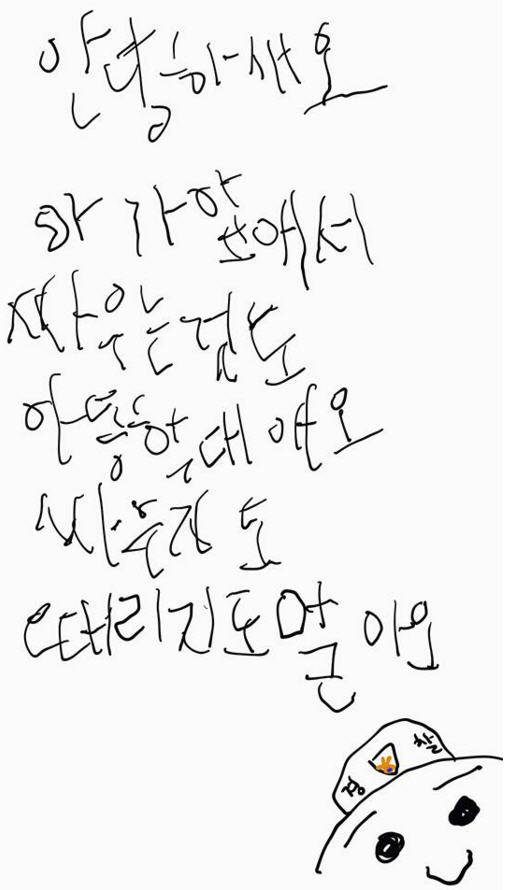 안녕하새요
아가앞에서
싸우는것도
아동학대에요
싸우지도
때리지도말아요
경찰